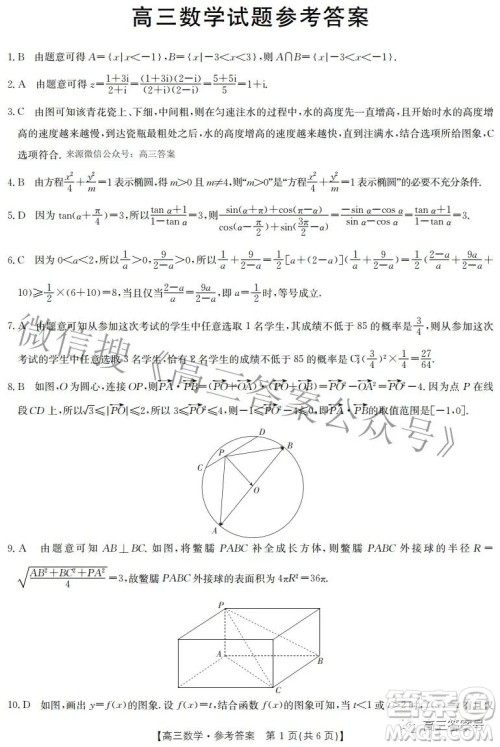 高三数学试题参考答案
1. B 由题意可得 A={x|x<-1},B={x|-3<x<3},则 A∩B={x|-3<x<-1}.
2. A 由题意可得 z=\frac{1+3i}{2+i}=\frac{(1+3i)(2-i)}{(2+i)(2-i)}=\frac{5+5i}{5}=1+i.
3. C 由图可知该青花瓷上、下细,中间粗,则在匀速注水的过程中,水的高度先一直增高,且开始时水的高度
的速度越来越慢,到达瓷瓶最粗处之后,水的高度增高的速度越来越快,直到注满水,结合所给的图象,C
选项符合. 来源微信公众号:高三答案
4. B 由方程\frac{x²}{4}+\frac{y²}{m}=1表示椭圆,得 m>0 且 m≠4,则“m>0”是“\frac{x²}{4}+\frac{y²}{m}=1 表示椭圆”的必要不充分条件.
5. D 因为 tan(α+\frac{π}{4})=3,所以\frac{tan α+1}{1-tan α}=3,则\frac{sin(α+π)+cos(π-α)}{cos(α-\frac{π}{2})+sin(\frac{3π}{2}-α)}=\frac{-sin α-cos α}{sin α-cos α}=\frac{tan α+1}{1-tan α}=3.
6. C 因为 0<a<2,所以\frac{1}{a}>0,\frac{9}{2-a}>0,所以\frac{1}{a}+\frac{9}{2-a}=\frac{1}{2}[a+(2-a)](\frac{1}{a}+\frac{9}{2-a})=\frac{1}{2}(\frac{2-a}{a}+\frac{9a}{2-a}+
10)≥\frac{1}{2}×(6+10)=8,当且仅当\frac{2-a}{a}=\frac{9a}{2-a},即 a=\frac{1}{2}时,等号成立.
7. A 由题意可知从参加这次考试的学生中任意选取 1 名学生,其成绩不低于 85 的概率是\frac{3}{4},则从参加
这次考试的学生中任意选取 3 名学生,恰有 2 名学生的成绩不低于 85 的概率是 C₃²(\frac{3}{4})²×\frac{1}{4}=\frac{27}{64}.
8. B 如图,O 为圆心,连接 OP,则PA·PB=(PO+OA)·(PO+OB)=PO²-OA²=PO²-4. 因为点 P 在线
段 CD 上,所以√3≤|PO|≤2,所以 3≤PO²≤4,则-1≤PO²-4≤0,即PA·PB的取值范围是[-1,0].
C
D
P
B
O
A
9. A 由题意可知 AB⊥BC. 如图,将鳖臑 PABC 补全成长方体,则鳖臑 PABC 外接球的半径 R=
\sqrt{\frac{AB²+BC²+PA²}{4}}=3,故鳖臑 PABC 外接球的表面积为 4πR²=36π.
P
A
C
B
10. D 如图,画出 y=f(x)的图象. 设 f(x)=t,结合函数 f(x)的图象可知,当 t<1 或
【高三数学·参考答案 第 1 页(共 6 页)】
微信搜《高三答案公众号》